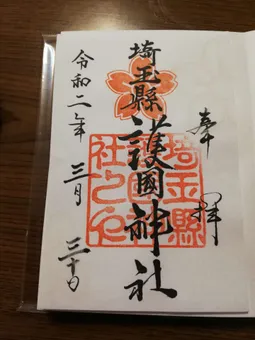 奉拝
埼玉縣護國神社
令和二年三月三十日
埼玉縣
社之印